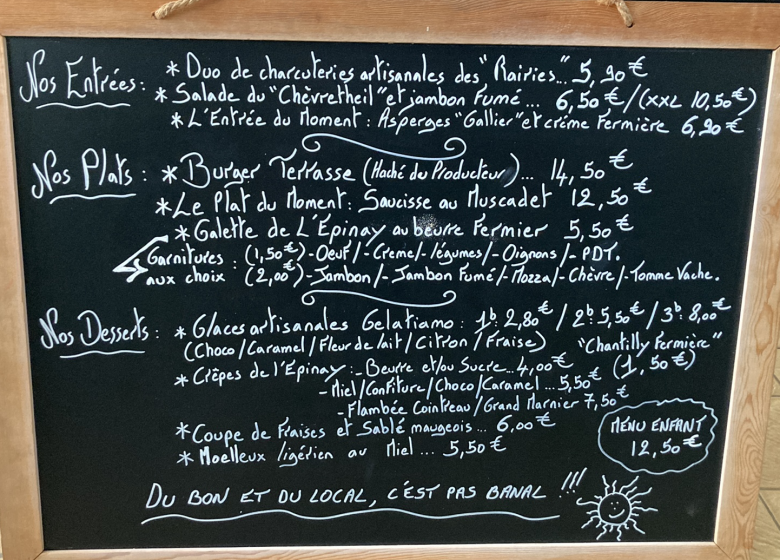 Nos Entrées : * Duo de charcuteries artisanales des "Rairies"... 5,90€
* Salade du "Chèvretheil" et jambon Fumé... 6,50€/(XXL 10,50€)
* L'Entrée du Moment : Asperges "Gallier" et crème Fermière 6,90€
Nos Plats : * Burger Terrasse (Haché du Producteur)... 14,50€
* Le Plat du Moment : Saucisse au Muscadet 12,50€
* Galette de L'Épinay au beurre Fermier 5,50€
Garnitures : (1,50€) - Oeuf/- Creme/- légumes/- Oignons/- PDT.
aux choix (2,00€) - Jambon/- Jambon Fumé/- Mozza/- Chèvre/- Tomme Vache.
Nos Desserts : * Glaces artisanales Gelatiamo : 1b: 2,80€ / 2b: 5,50€ / 3b: 8,00€
(Choco/Caramel/Fleur de lait/Citron/Fraise) "Chantilly Fermière"
* Crêpes de l'Épinay : - Beurre et/ou Sucre... 4,00€ (1,50€)
- Miel/Confiture/Choco/Caramel... 5,50€
- Flambée Cointreau/Grand Marnier 7,50€
* Coupe de Fraises et Sablé maugeois... 6,00€
* Moelleux ligérien au Miel... 5,50€
MENU ENFANT
12,50€
DU BON ET DU LOCAL, C'EST PAS BANAL !!!